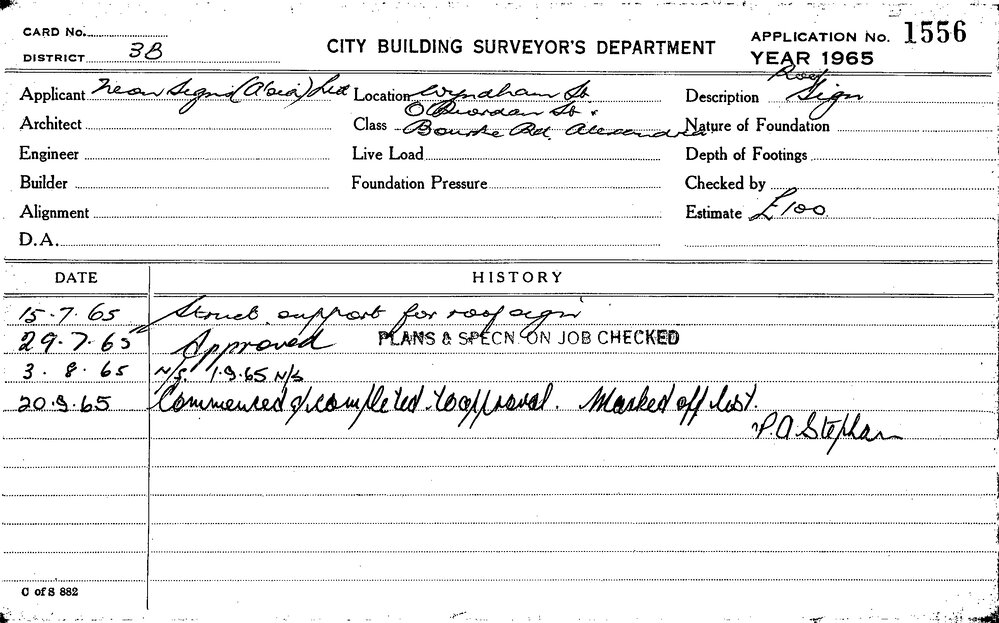 CARD No.
DISTRICT 3B
CITY BUILDING SURVEYOR'S DEPARTMENT
APPLICATION No. 1556
YEAR 1965
Applicant Neon Signs (Asia) Ltd Location Wyndham St. Description Roof Sign
O'Riordan St.
Architect Class Bourke Rd. Alexandria Nature of Foundation
Engineer Live Load Depth of Footings
Builder Foundation Pressure Checked by
Alignment Estimate £100
D.A.
DATE HISTORY
15.7.65 Struct. support for roof sign
29.7.65 Approved PLANS & SPECN. ON JOB CHECKED
3.8.65 N/S. 1.9.65 N/S
20.9.65 Commenced & completed to approval. Marked off list.
P.A Stephan
C of S 882